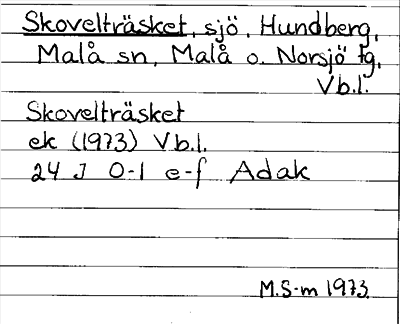 Skovelträsket, sjö, Hundberg,
Malå sn, Malå o. Norsjö tg,
Vb.l.
Skovelträsket
ek (1973) Vb.l.
24 J 0-1 e-f Adak
M.S-m 1973.